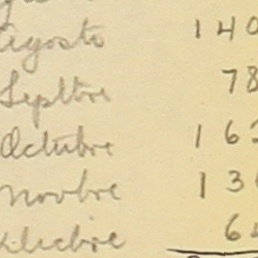 Agosto 140
Septbre 78
Octubre 16
Novbre 13
Dicbre 6